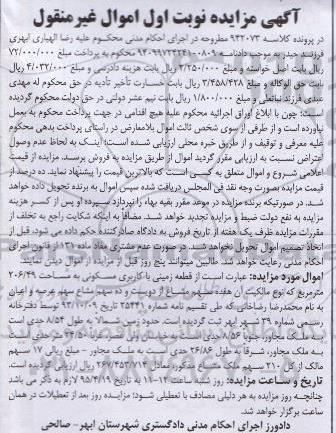 آگهی مزایده نوبت اول اموال غیر منقول
در پرونده کلاسه ۹۴۲۰۷۳ مطروحه در اجرای احکام مدنی محکوم علیه رضا الهیاری ابهری
فرزند حیدر به موجب دادنامه ۹۴۰۹۹۷۲۴۲۴۱۰۰۸۰۹ محکوم به پرداخت مبلغ ۷۲/۰۰۰/۰۰۰
ریال بابت اصل خواسته و مبلغ ۲/۲۵۰/۰۰۰ ریال بابت هزینه دادرسی و مبلغ ۴/۰۳۲/۰۰۰ ریال
بابت حق الوکاله و مبلغ ۳/۴۵۸/۴۲۸ ریال بابت خسارت تأخیر تأدیه در حق محکوم له مهدی
عبدی فرزند نباتعلی و مبلغ ۱/۸۰۰/۰۰۰ ریال بابت نیم عشر دولتی در حق دولت محکوم گردیده
است؛ چون با ابلاغ اوراق اجرائیه محکوم علیه هیچ اقدامی در جهت پرداخت محکوم به بعمل
نیاورده است و از طرفی از سوی شخص ثالث اموال بلامعارض در راستای پرداخت بدهی محکوم
علیه معرفی و توقیف و از طریق خبره محلی ارزیابی شده است؛ اینک به لحاظ عدم وصول
اعتراض نسبت به ارزیابی مقرر گردید اموال از طریق مزایده به فروش برسد. مزایده از قیمت
اعلامی شروع و اموال متعلق به کسی است که بالاترین قیمت را پیشنهاد نماید. ده درصد از
قیمت مزایده بصورت وجه نقد فی المجلس دریافت شده سپس اموال به برنده تحویل داده خواهد
شد. در صورتیکه برنده مزایده در موعد مقرر بقیه بهاء را نپردازد سپرده او پس از کسر هزینه
مزایده به نفع دولت ضبط و مزایده تجدید خواهد شد. مضافا به اینکه شکایت راجع به تخلف از
مقررات مزایده ظرف یک هفته از تاریخ فروش به دادگاه صادرکننده حکم داده می شود، قبل از
اتخاذ تصمیم اموال تحویل نخواهد شد. در صورت عدم مشتری مفاد ماده ۱۳۱ از قانون اجرای
احکام مدنی رعایت خواهد شد. طالبین میتوانند پنج روز قبل از مزایده از اموال دیدن نمایند.
اموال مورد مزایده: عبارت است از قطعه زمینی با کاربری مسکونی به مساحت ۲۰۶/۴۹
مترمربع که نوع مالکیت آن هفده سهم مشاع از دویست و ده سهم مشاع سهم عرصه و اعیان
به نام محمدرضا رضاخانی که طی تقسیم نامه شماره ۲۵۴۴۱ تاریخ ۹۳/۱۰/۰۹ توسط دفترخانه
رسمی شماره ۳۹ شهر ابهر ثبت گردیده است. حدود زمین شمالاً به طول ۸/۵۴ حدی است
به ملک مجاور، جنوبا ۸/۵۶ حدی است
به ملک مجاور، شرقا به طول ۲۶/۸۶ حدی نسبت به ملک مجاور - مبلغ ریالی ۱۷ سهم
مالک از کل ۲۱۰ سهم ملک مشاع مذکور، معادل ۲۶۷/۴۵۳/۷۴۳ ریال ارزیابی گردیده است.
تاریخ و ساعت مزایده: روز شنبه ساعت ۱۲-۱۱ به تاریخ ۹۵/۴/۱۹ لازم به ذکر می باشد
چنانچه روز مزایده به هر دلیلی مصادف با تعطیلی شود؛ مزایده روز بعد از تعطیلات در همان
ساعت برگزار خواهد شد.
دادورز اجرای احکام مدنی دادگستری شهرستان ابهر- صالحی